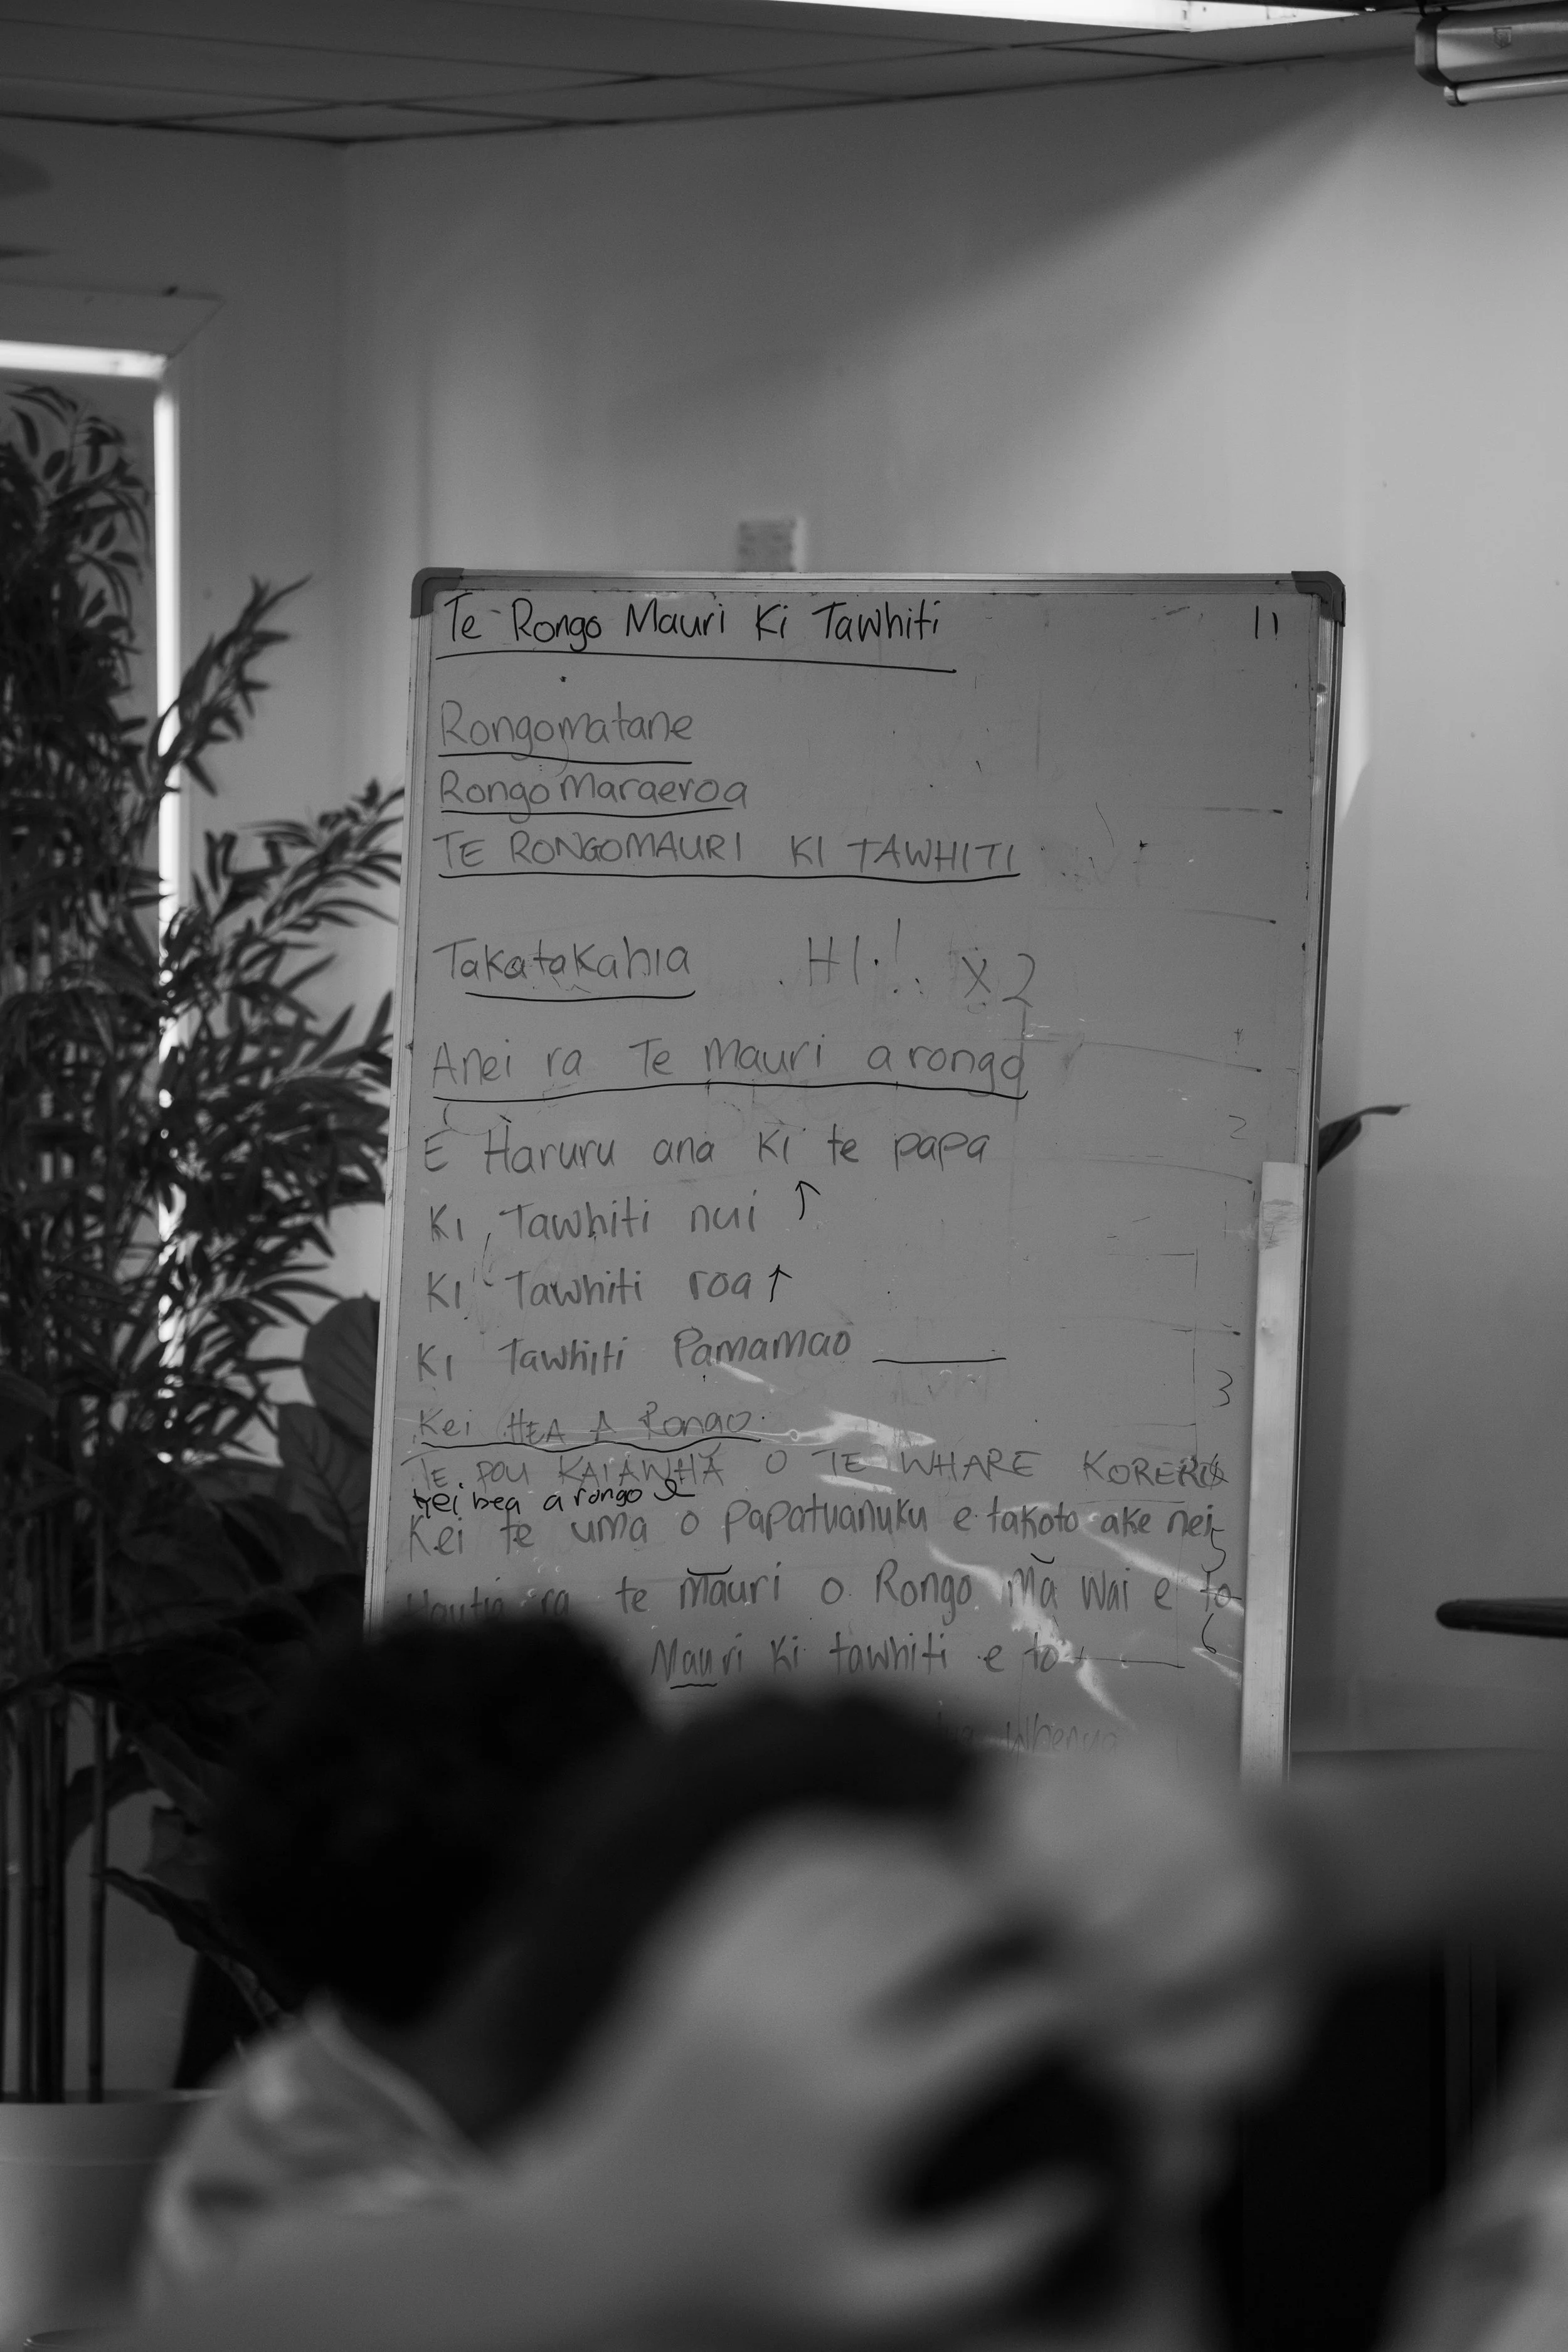 Te Rongo Mauri Ki Tawhiti 11
Rongomatane
RongoMaraeroa
TE RONGOMAURI KI TAWHITI
Takatakahia HI! X2
Anei ra Te Mauri a rongo
E Haruru ana Ki te papa 2
Ki Tawhiti nui ↑
Ki Tawhiti roa ↑
Ki Tawhiti Pamamao
Kei HEA A Rongo 3
TE POU KAIAWHĀ O TE WHARE KORERO
kei hea a rongo
Kei te uma o papatuanuku e takoto ake nei 5
ra te māuri o Rongo mā wai e to
Mauri Ki tawhiti e to 6
Whenua